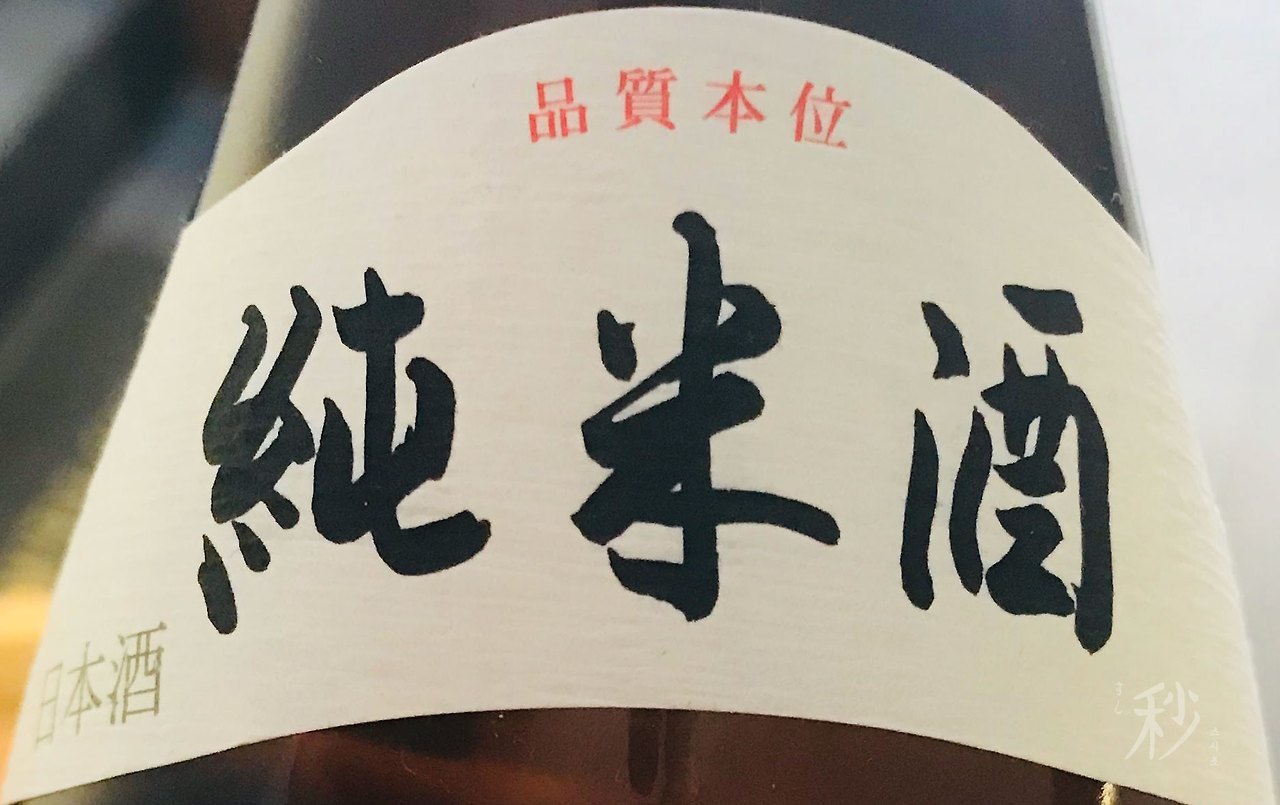 品質本位
純米酒
日本酒
秒